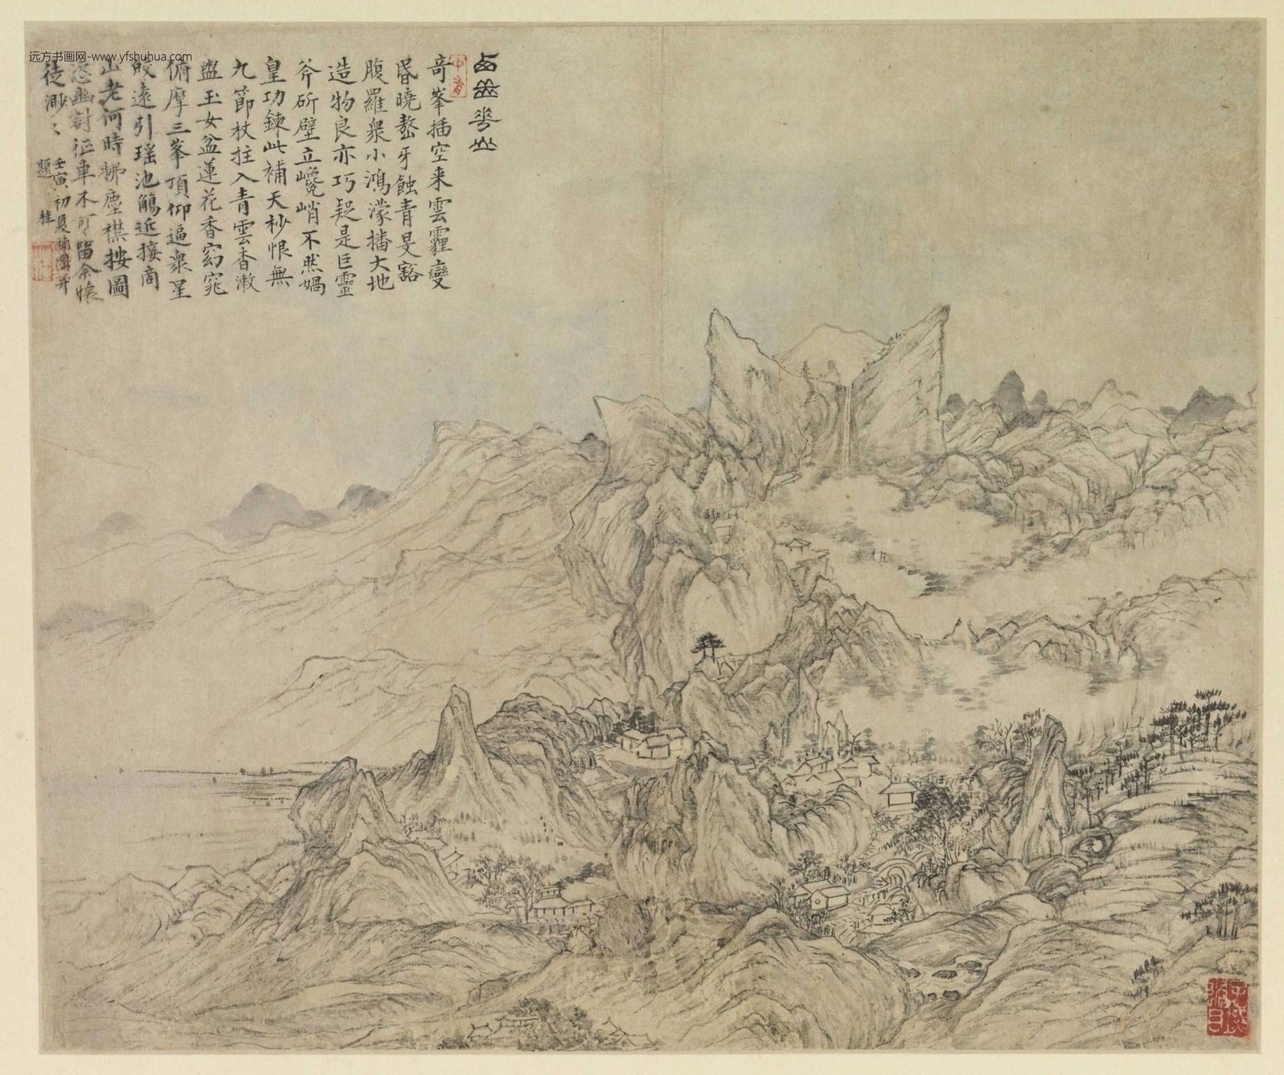 远方书画网-www.yfshuhua.com
西岳华山
奇峯插空来雲霾變
昏曉嶅牙蝕青旻豁
腹羅衆小鴻濛播大地
造物良亦巧疑是巨靈
斧斫壁立巉峭不然媧
皇功鍊此補天杪恨無
九節杖拄入青雲香漱
盥玉女盆蓮花香窈窕
俯摩三峯頂仰逼衆星
皎遠引瑶池觴近接商
山老何時拂塵襟按圖
恣幽討征車不可留余懷
徒渺〻
壬寅初夏補圖并
題 桂